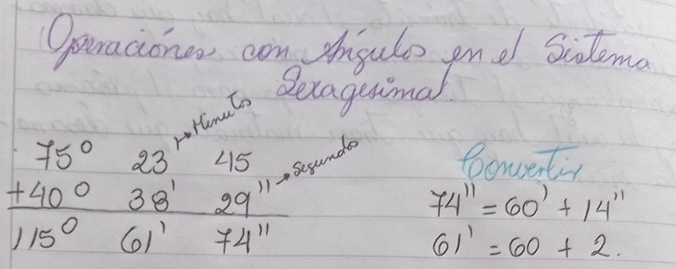 Operaciónes con Ángulos en el Sistema
Sexagesimal.
75° 23' → Minutos 45
+40° 38' 29'' → Segundos
115° 61' 74''
Convertir
74'' = 60' + 14''
61' = 60 + 2.